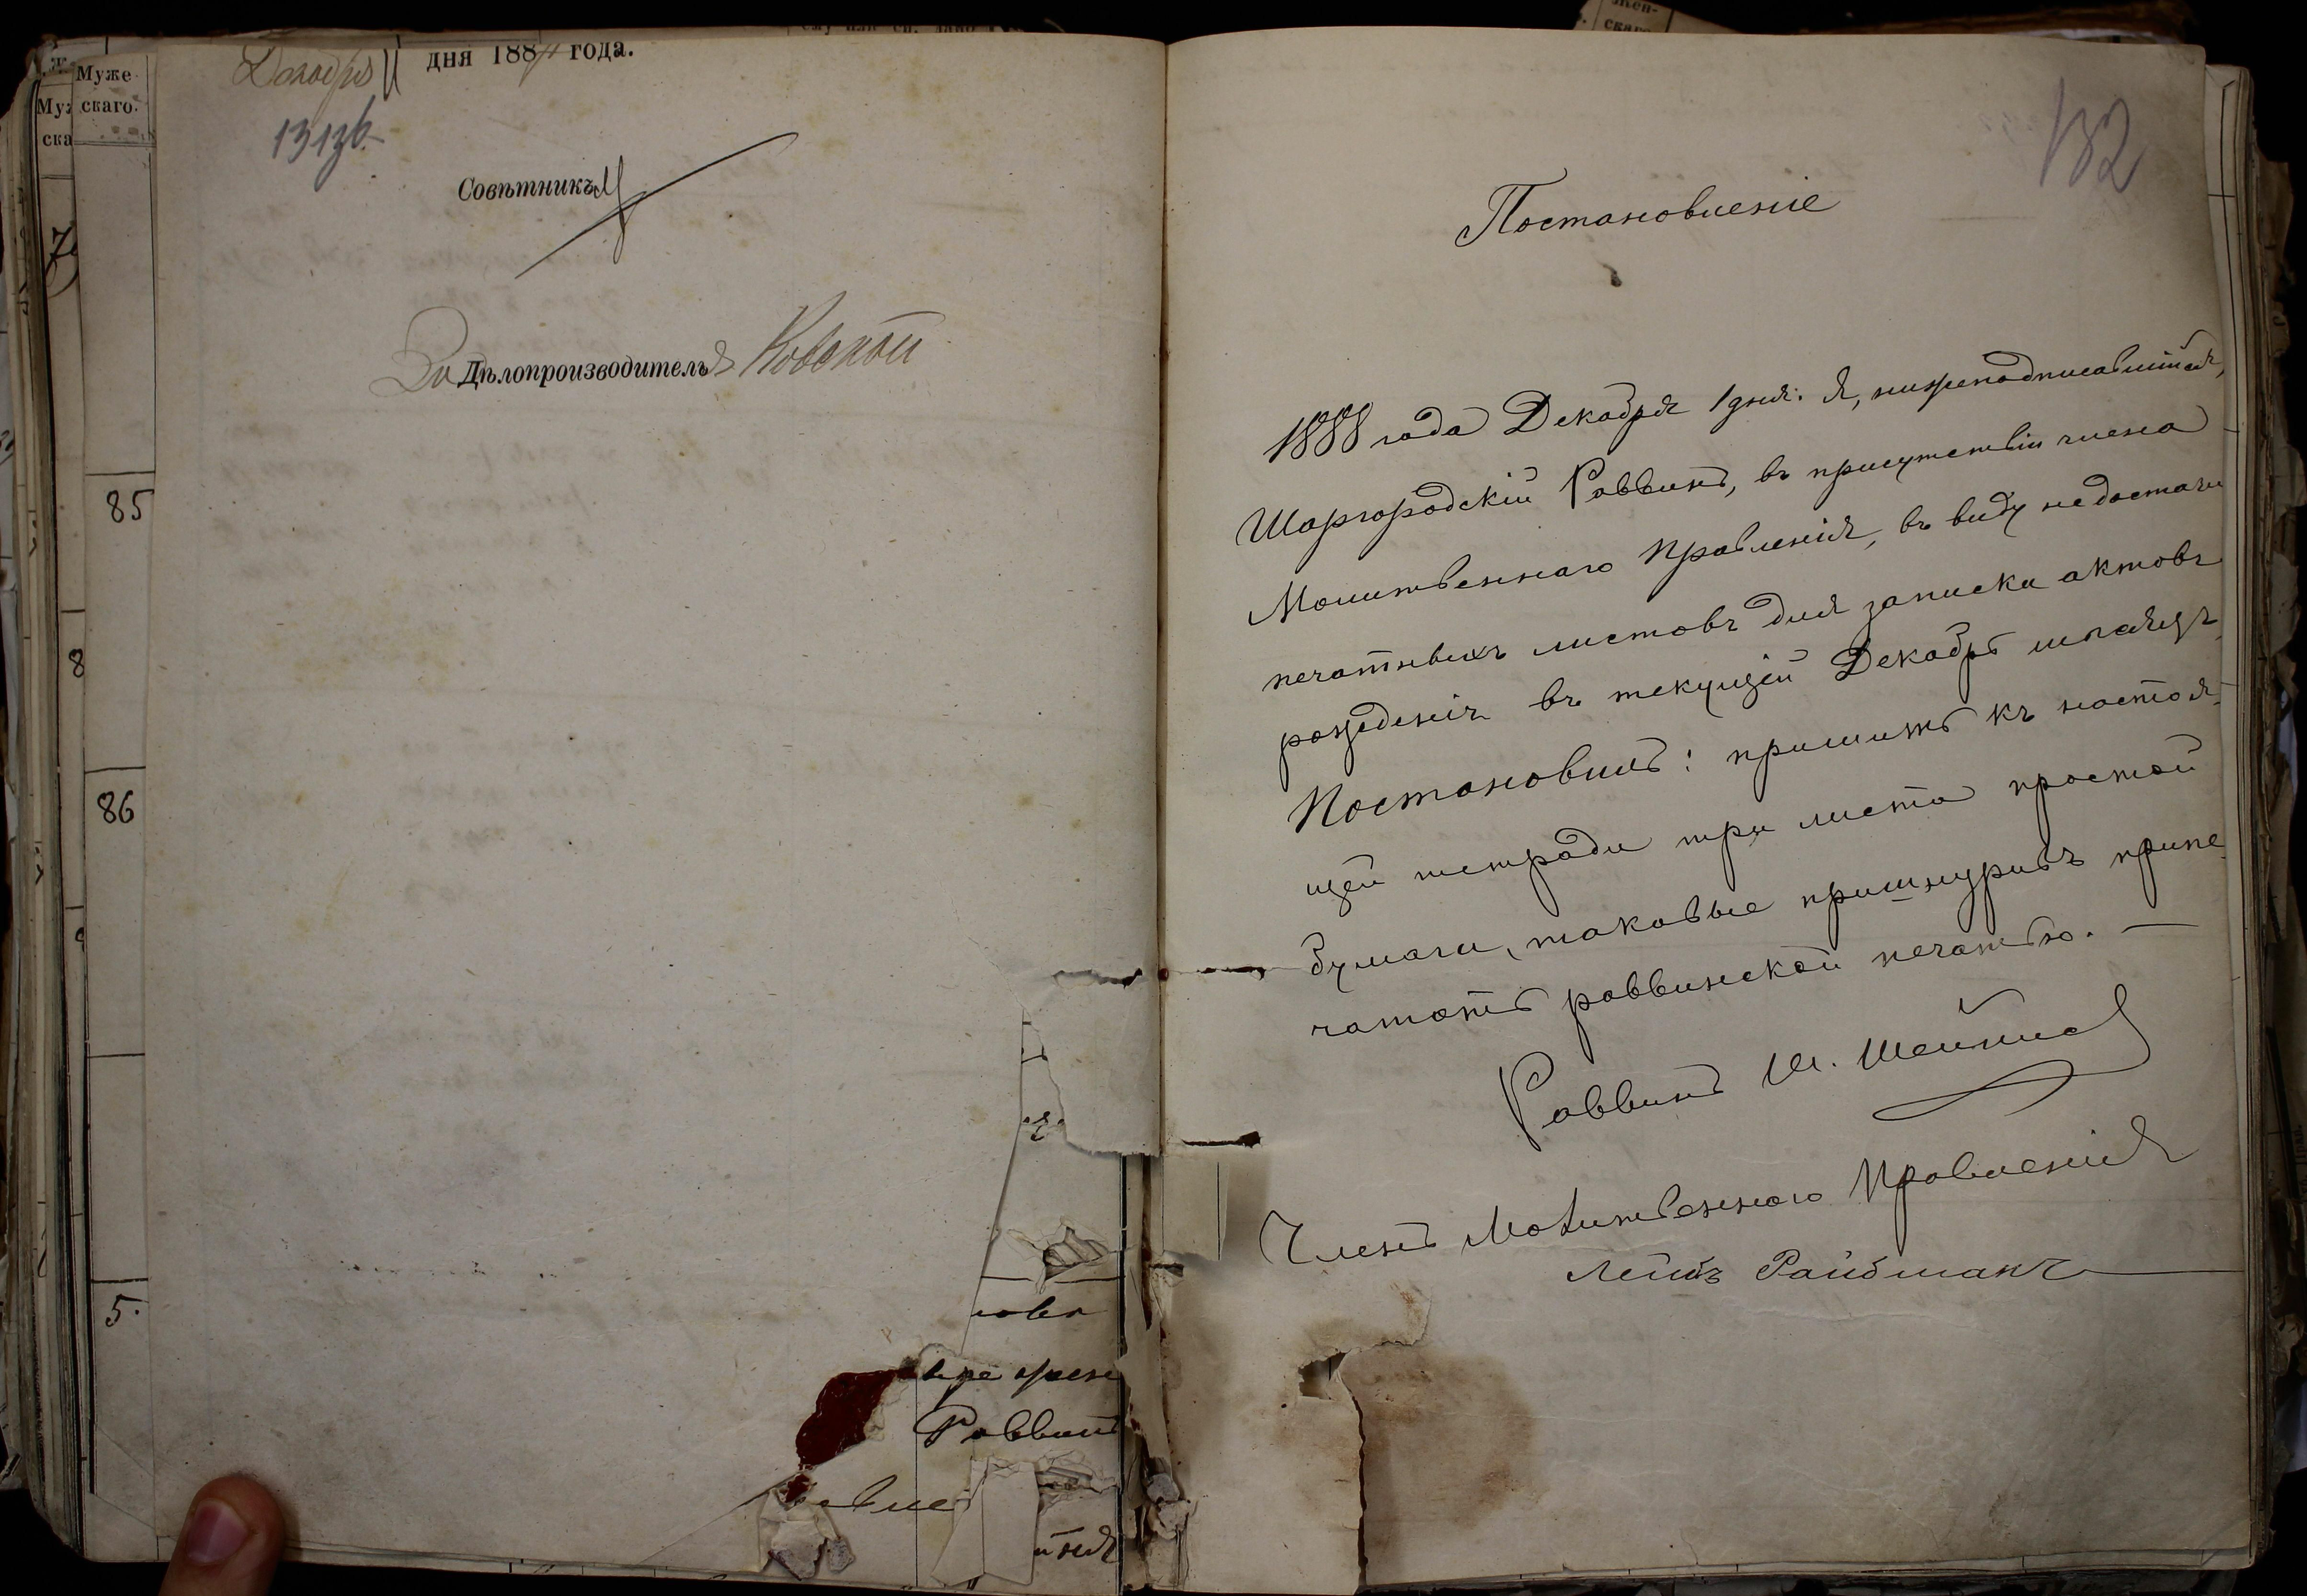 Муже
скаго.
Му
ска
7
85
8
86
5.
Декабря 11 дня 188 года.
131зв.
Совѣтникъ
За Дѣлопроизводителя
132
Постановленіе
1888 года Декабря 1 дня. Я, нижеподписавшійся,
Шаргородскій Раввинъ, въ присутствіи члена
Молитвеннаго Правленія, въ виду недостачи
печатныхъ листовъ для записки актовъ
рожденія въ текущей Декабрѣ мѣсяцѣ
Постановилъ: пришить къ настоя
щей тетради три листа простой
бумаги, таковые пришнуривъ припе
чатать раввинской печатью. —
Раввинъ
Членъ Молитвеннаго Правленія
Лейбъ Райбманъ
Раввинъ